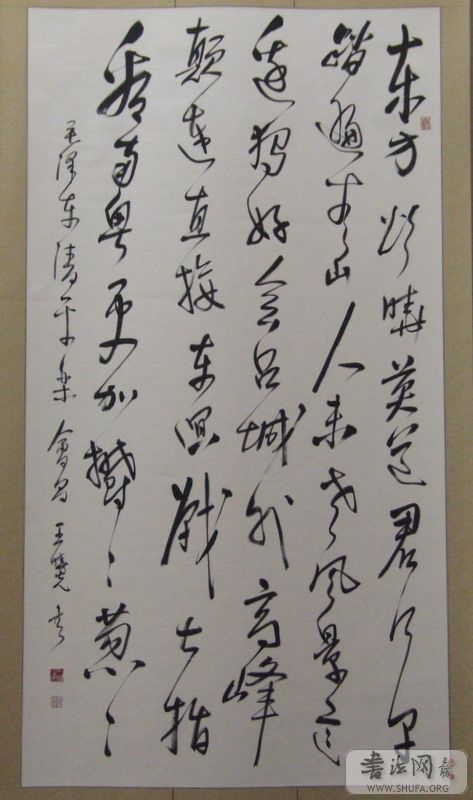 东方欲曉莫道君行早
踏遍青山人未老风景这
边独好会昌城外高峰
颠连直接东溟战士指
看南粤更加鬱々葱々
毛泽东清平乐 會昌 王 书
书法网
WWW.SHUFA.ORG